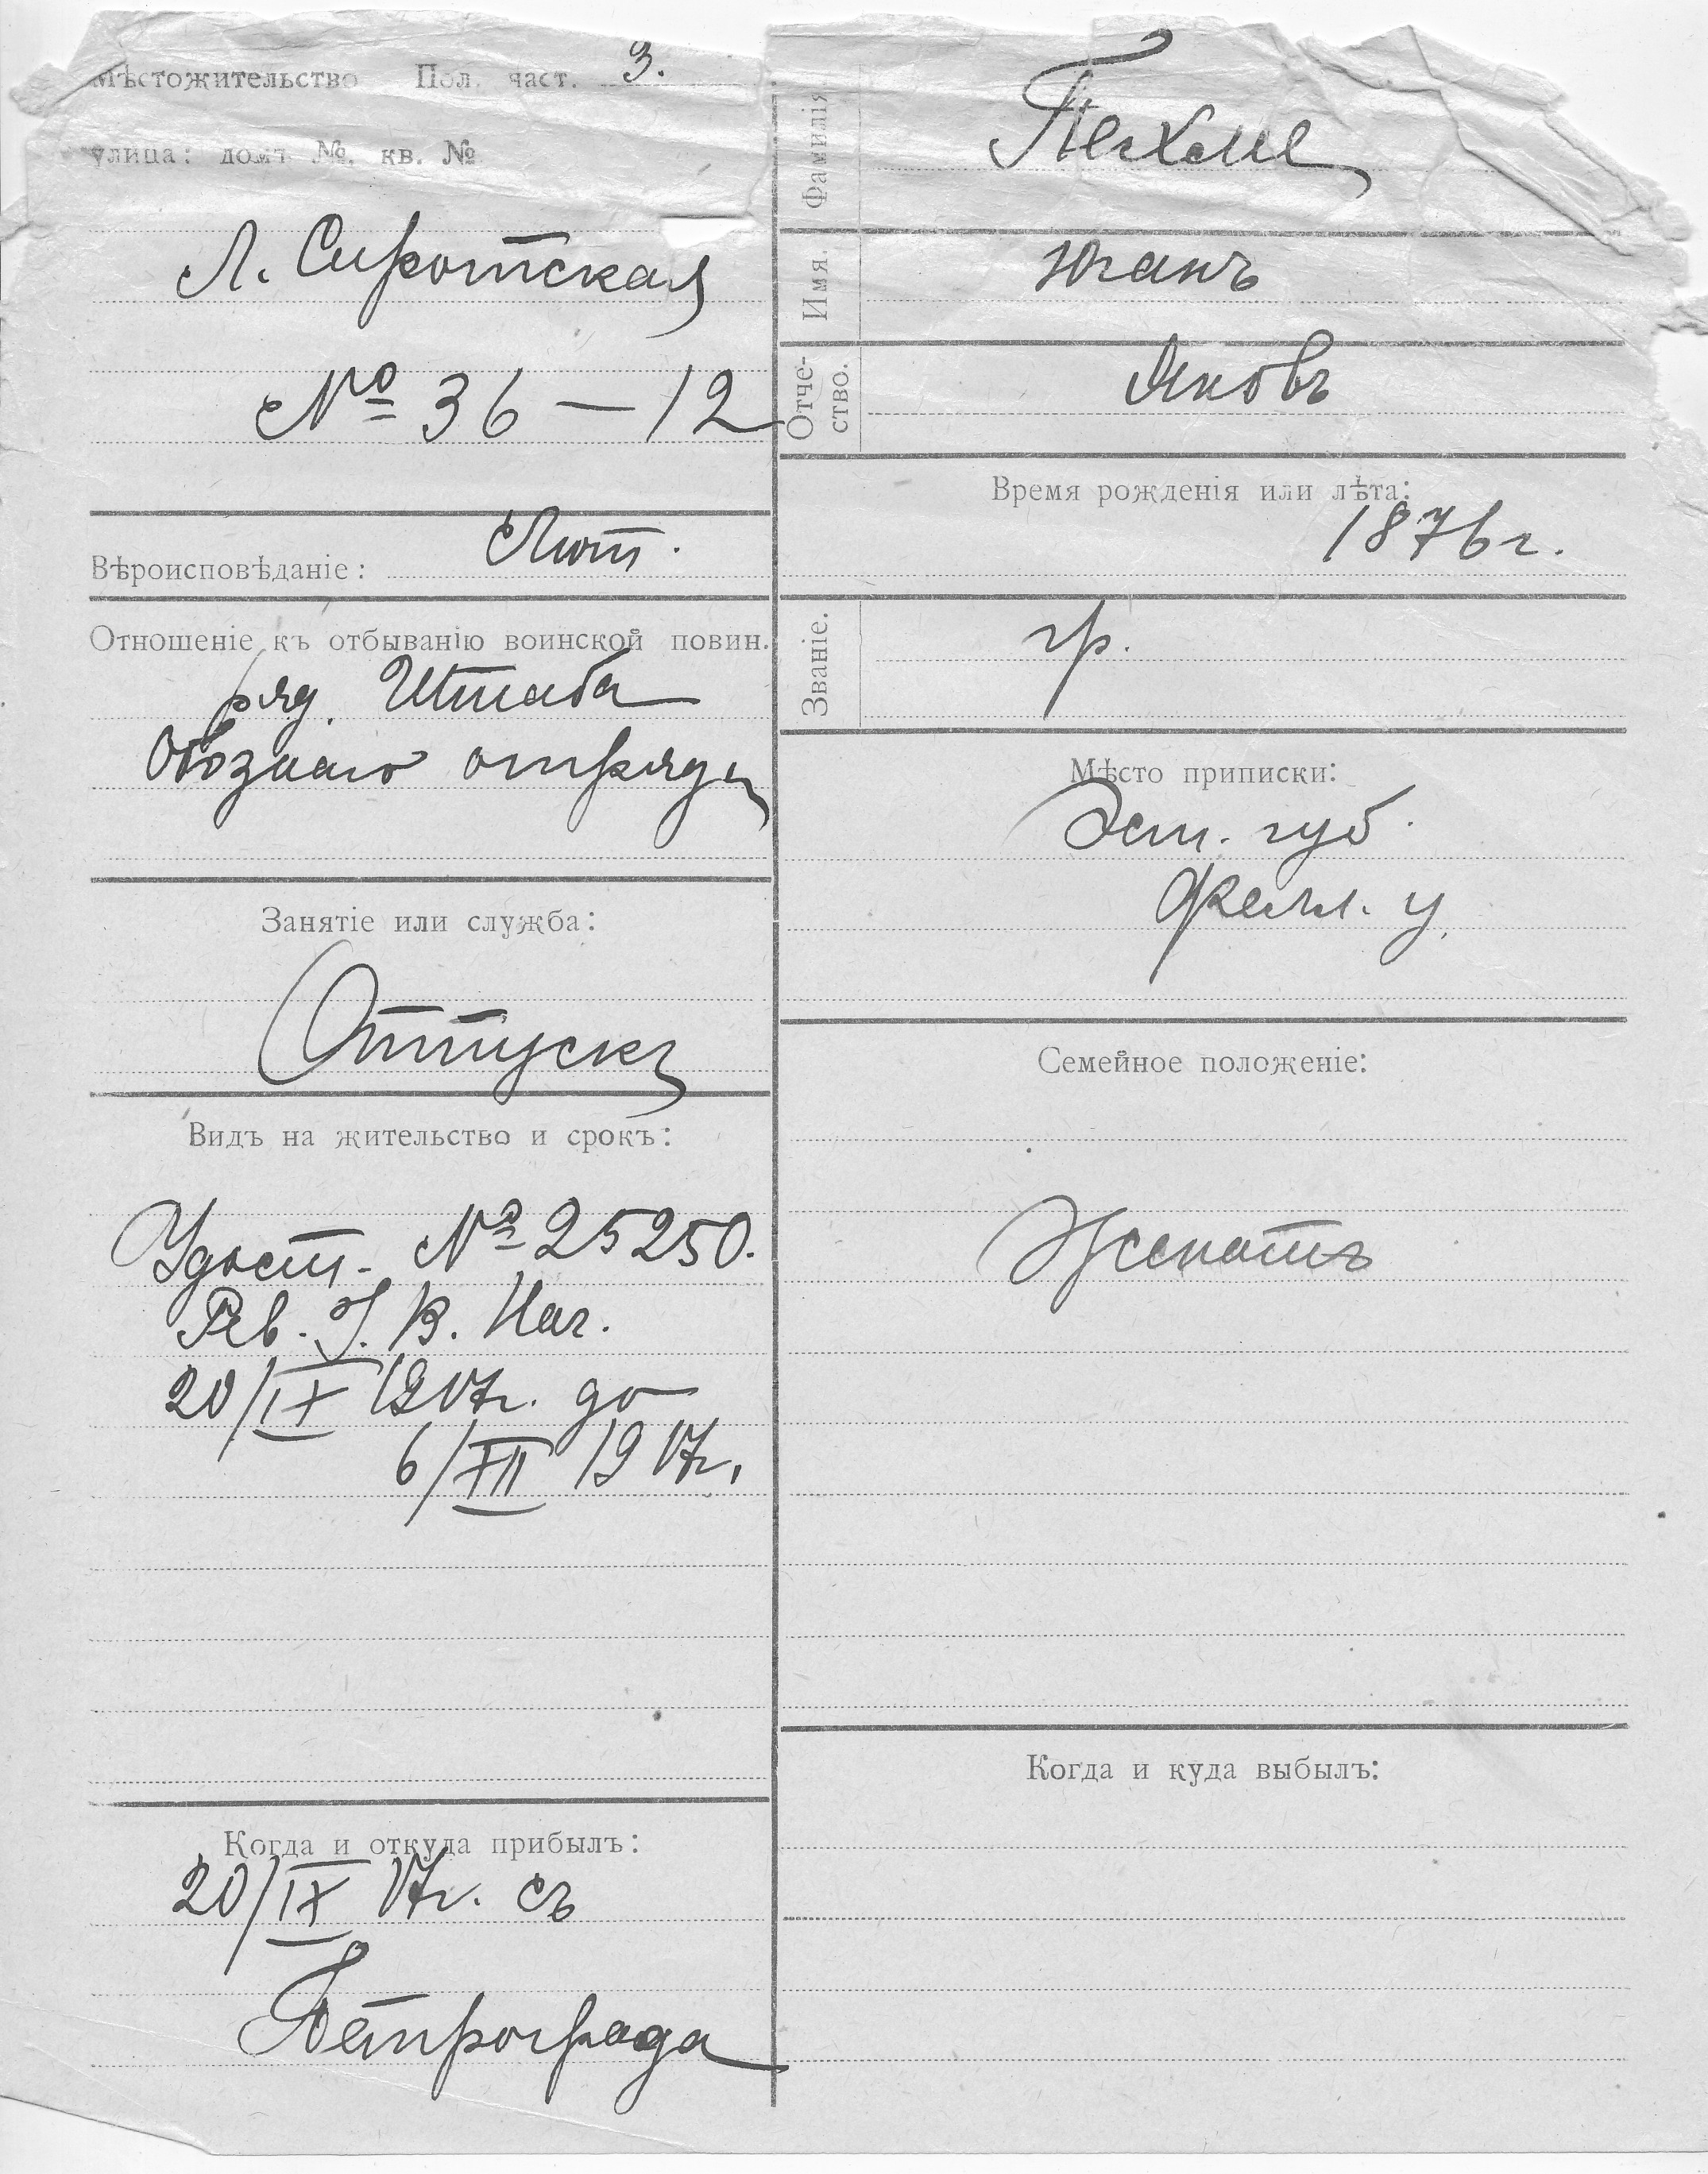 Мѣстожительство Пол. част. 3.
улица: домъ №, кв. №
Л. Сиротская
№ 36 — 12
Вѣроисповѣданіе: Лют.
Отношеніе къ отбыванію воинской повин.
ряд. Штаба
Обознаго отряда
Занятіе или служба:
Отпускъ
Видъ на жительство и срокъ:
Удост. № 25250.
Рев. У. В. Нач.
20/IX 1917г. до
6/XII 1917г.
Когда и откуда прибылъ:
20/IX 17г. съ
Петрограда
Фамилія
Пехме
Имя.
Юганъ
Отче-
ство.
Яковъ
Время рожденія или лѣта:
1876г.
Званіе.
гр.
Мѣсто приписки:
Эст. губ.
Фелл. у.
Семейное положеніе:
Женатъ
Когда и куда выбылъ: